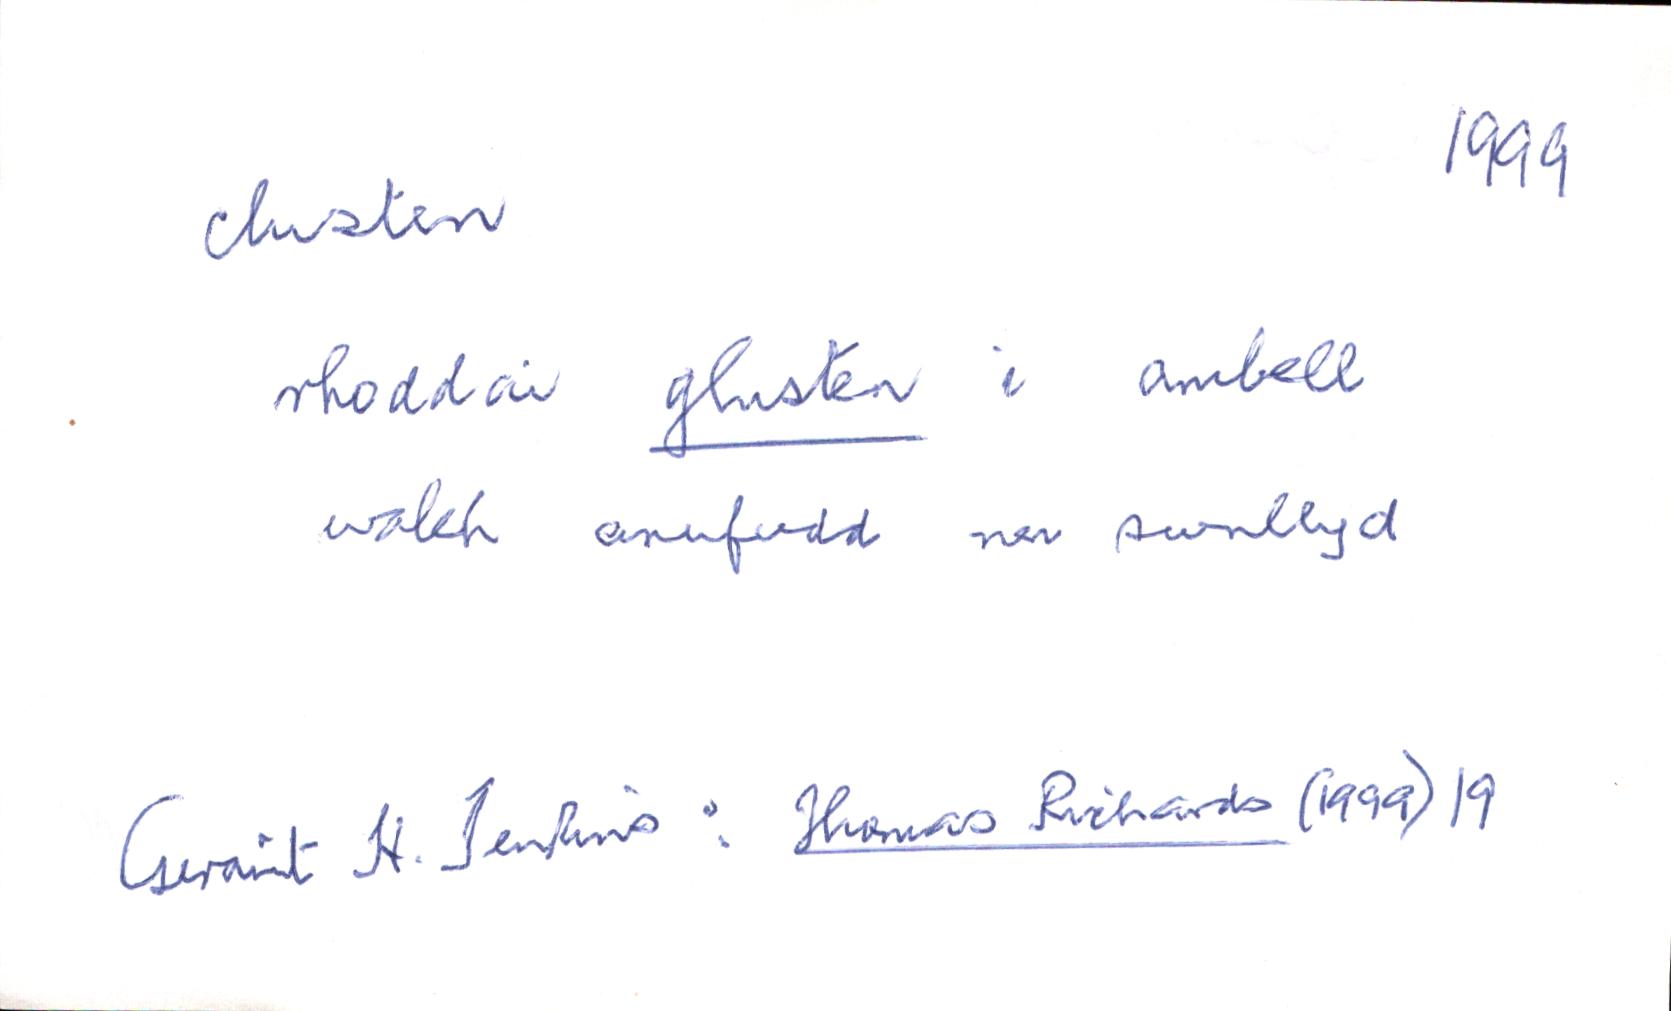 1999
clusten
rhoddai glusten i ambell
walch anufudd neu swnllyd
Geraint H. Jenkins : Thomas Richards (1999) 19